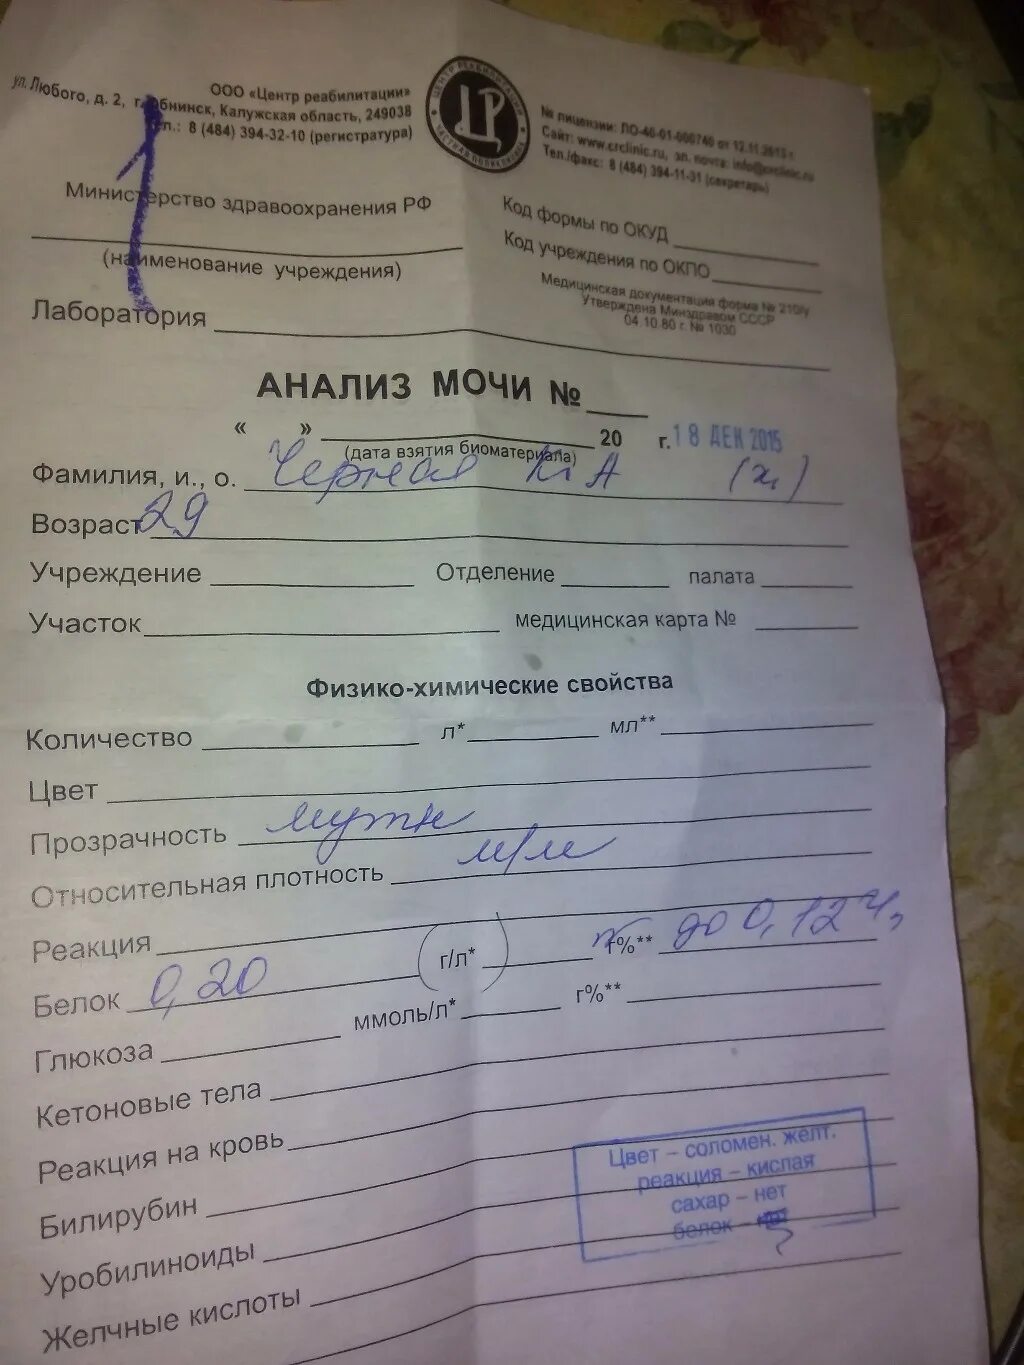 ООО «Центр реабилитации»
ул. Любого, д. 2, г. Обнинск, Калужская область, 249038
Тел.: 8 (484) 394-32-10 (регистратура)
ЦЕНТР РЕАБИЛИТАЦИИ
ЦР
ЧАСТНАЯ ПОЛИКЛИНИКА
№ лицензии: ЛО-40-01-000746 от 12.11.2013 г.
Сайт: www.crclinic.ru, эл. почта: info@crclinic.ru
Тел./факс: 8 (484) 394-11-31 (секретарь)
1
Министерство здравоохранения РФ
(наименование учреждения)
Код формы по ОКУД
Код учреждения по ОКПО
Медицинская документация форма № 210/у
Утверждена Минздравом СССР
04.10.80 г. № 1030
Лаборатория
АНАЛИЗ МОЧИ №
« » 20 г. 18 ДЕК 2015
(дата взятия биоматериала)
Фамилия, и., о. Черная К А
Возраст 29
Учреждение Отделение палата
Участок медицинская карта №
Физико-химические свойства
Количество л* мл**
Цвет
Прозрачность мутн
Относительная плотность м/м
Реакция
Белок 0,20 г/л* г%** до 0,12 ч,
Глюкоза ммоль/л* г%**
Кетоновые тела
Реакция на кровь
Билирубин
Уробилиноиды
Желчные кислоты
Цвет – соломен. желт.
реакция – кислая
сахар – нет
белок –